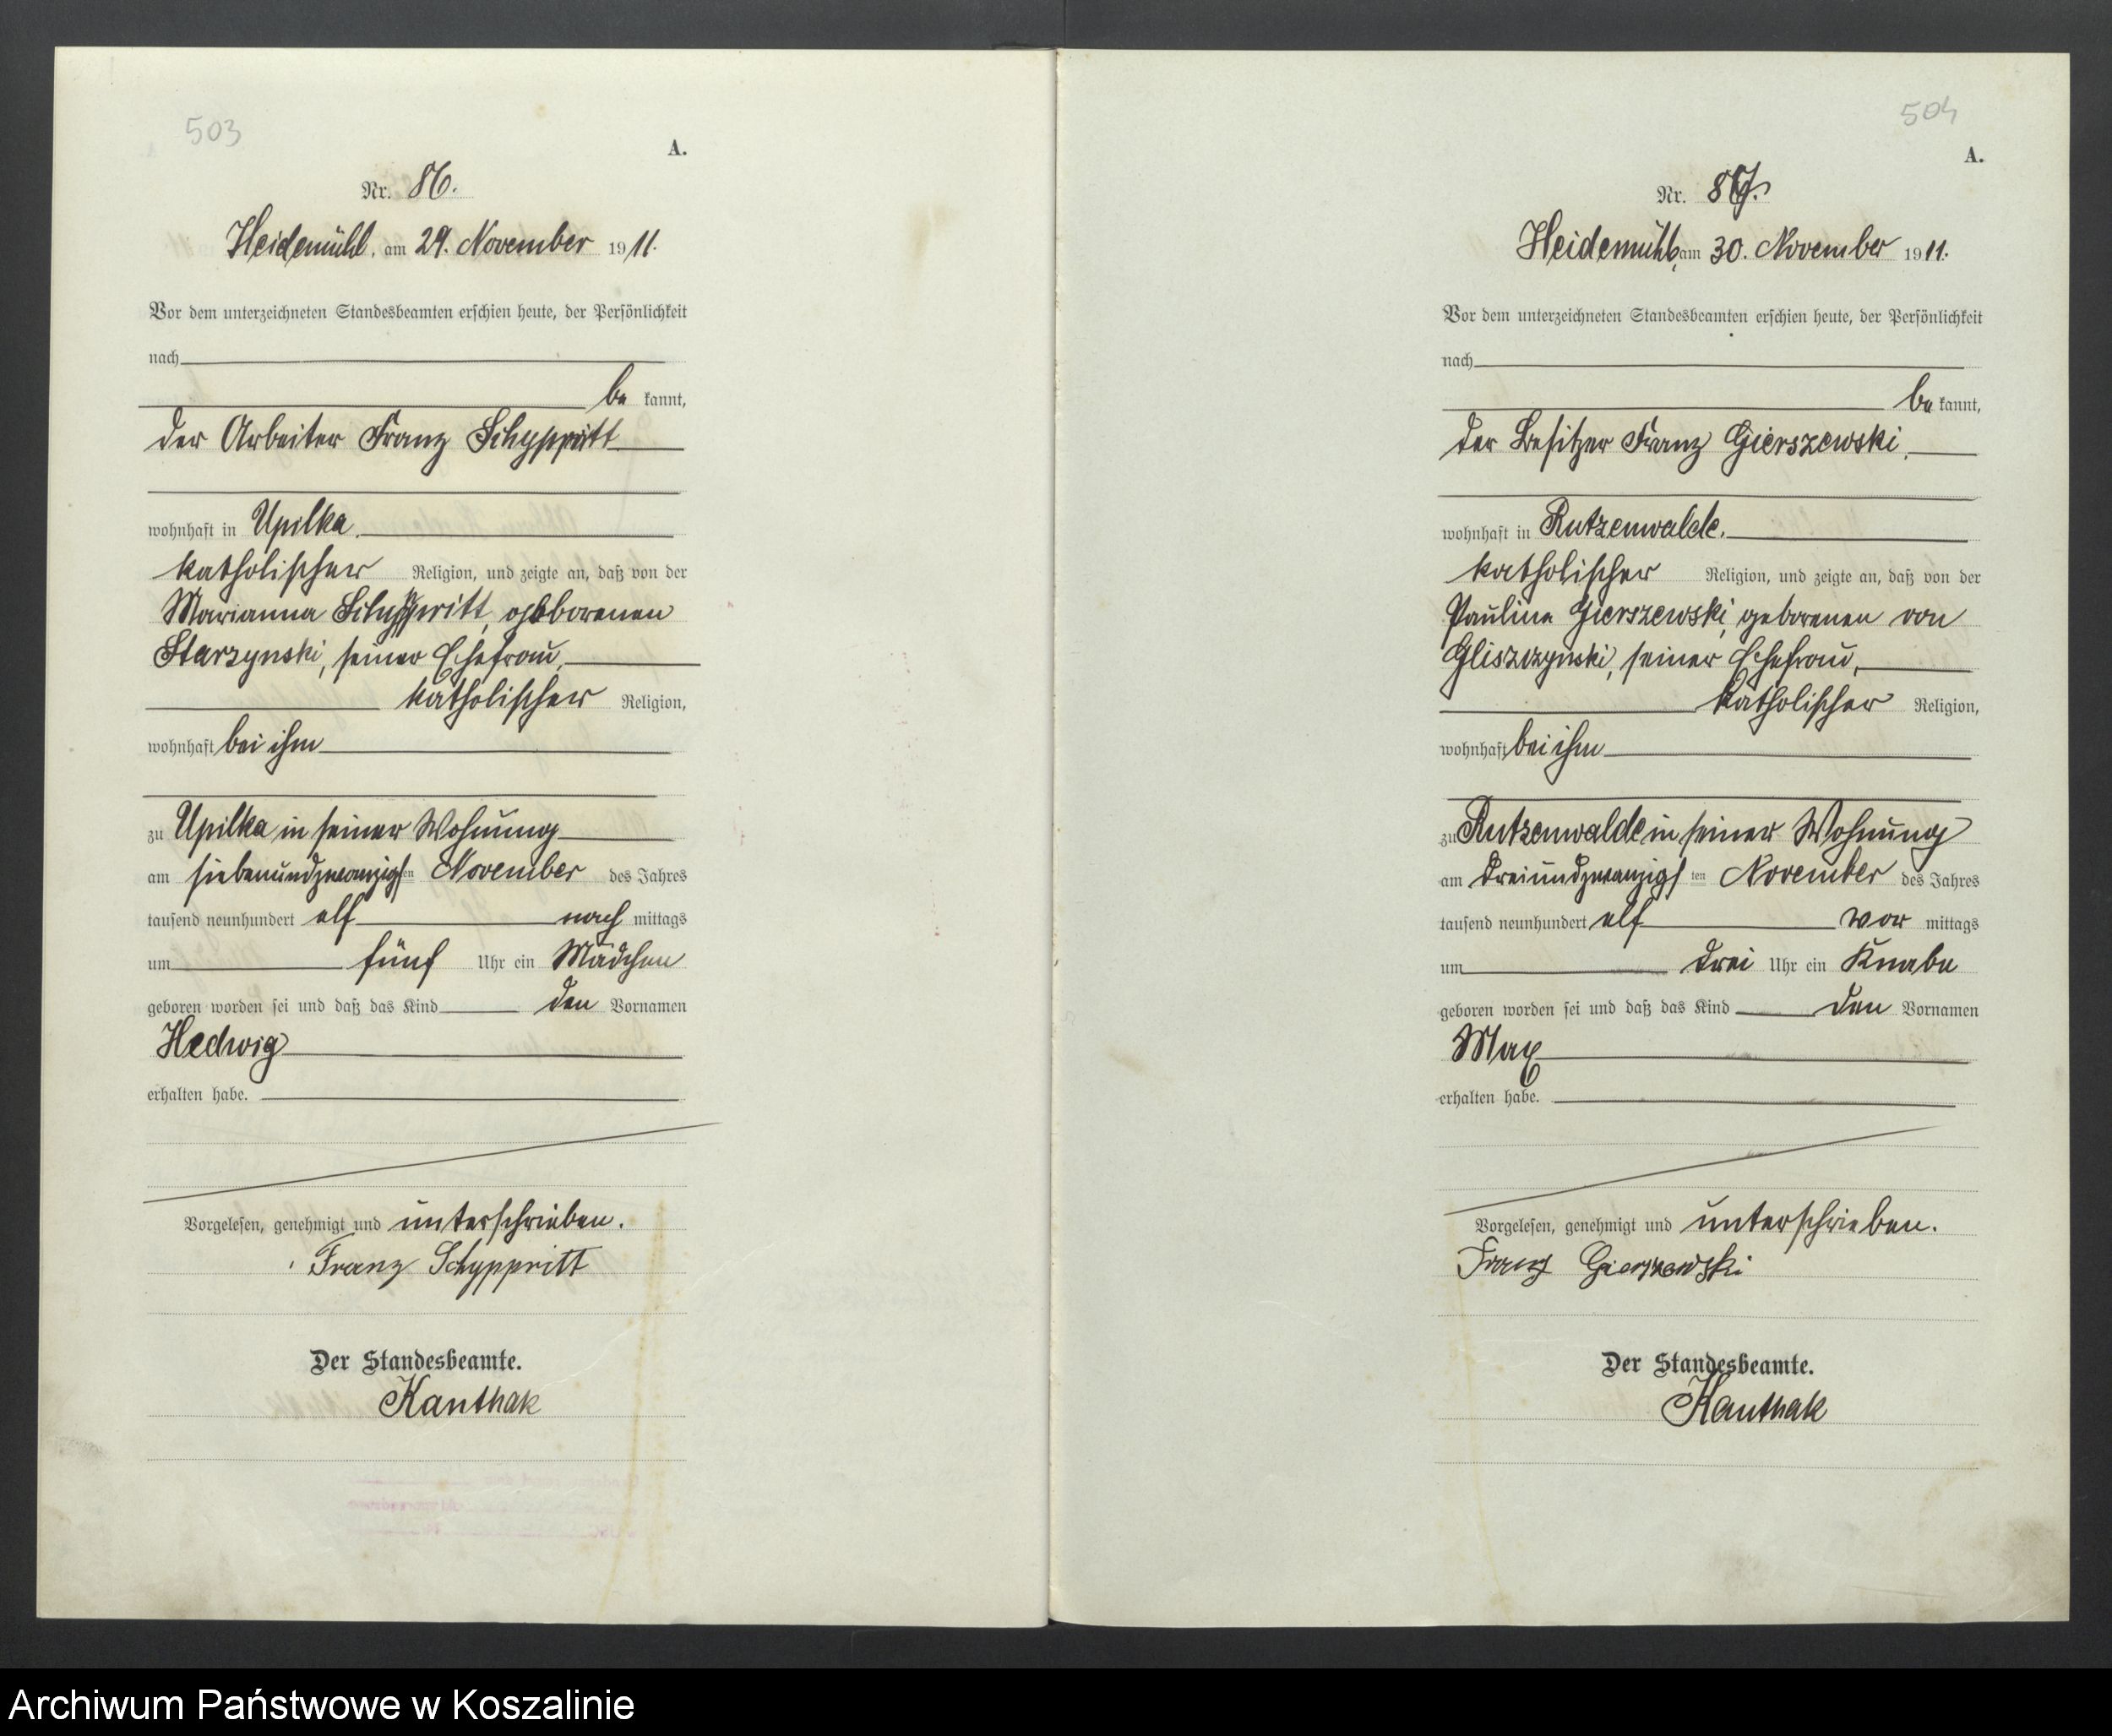 503
A.
Nr. 86.
Heidemühl, am 29. November 1911.
Vor dem unterzeichneten Standesbeamten erschien heute, der Persönlichkeit
nach
be kannt,
der Arbeiter Franz Schyppritt
wohnhaft in Upilka.
katholischer Religion, und zeigte an, daß von der
Marianna Schyppritt, geborenen
Starzynski, seiner Ehefrau,
katholischer Religion,
wohnhaft bei ihm
zu Upilka in seiner Wohnung
am siebenundzwanzigsten November des Jahres
tausend neunhundert elf nach mittags
um fünf Uhr ein Mädchen
geboren worden sei und daß das Kind den Vornamen
Hedwig
erhalten habe.
Vorgelesen, genehmigt und unterschrieben.
Franz Schyppritt
Der Standesbeamte.
Kanthak
504
A.
Nr. 87.
Heidemühl, am 30. November 1911.
Vor dem unterzeichneten Standesbeamten erschien heute, der Persönlichkeit
nach
be kannt,
der Besitzer Franz Gierszewski,
wohnhaft in Rutzenwalde.
katholischer Religion, und zeigte an, daß von der
Pauline Gierszewski, geborenen von
Gliszczynski, seiner Ehefrau,
katholischer Religion,
wohnhaft bei ihm
zu Rutzenwalde in seiner Wohnung
am dreiundzwanzigsten November des Jahres
tausend neunhundert elf vor mittags
um drei Uhr ein Knabe
geboren worden sei und daß das Kind den Vornamen
Max
erhalten habe.
Vorgelesen, genehmigt und unterschrieben.
Franz Gierszewski
Der Standesbeamte.
Kanthak
Archiwum Państwowe w Koszalinie